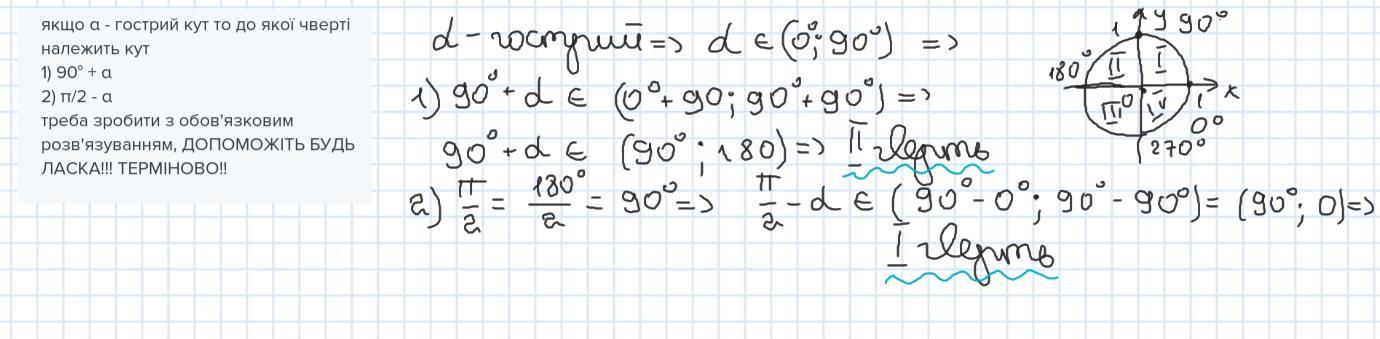 якщо α - гострий кут то до якої чверті
належить кут
1) 90° + α
2) π/2 - α
треба зробити з обов'язковим
розв'язуванням, ДОПОМОЖІТЬ БУДЬ
ЛАСКА!!! ТЕРМІНОВО!!
α - гострий => α ∈ (0°; 90°) =>
1) 90° + α ∈ (0° + 90; 90° + 90°) =>
90° + α ∈ (90°; 180) => II чверть
2) π/2 = 180°/2 = 90° => π/2 - α ∈ (90° - 0°; 90° - 90°) = (90°; 0) =>
I чверть
1 y 90°
180° II I
III 0 IV 1 x
0°
270°